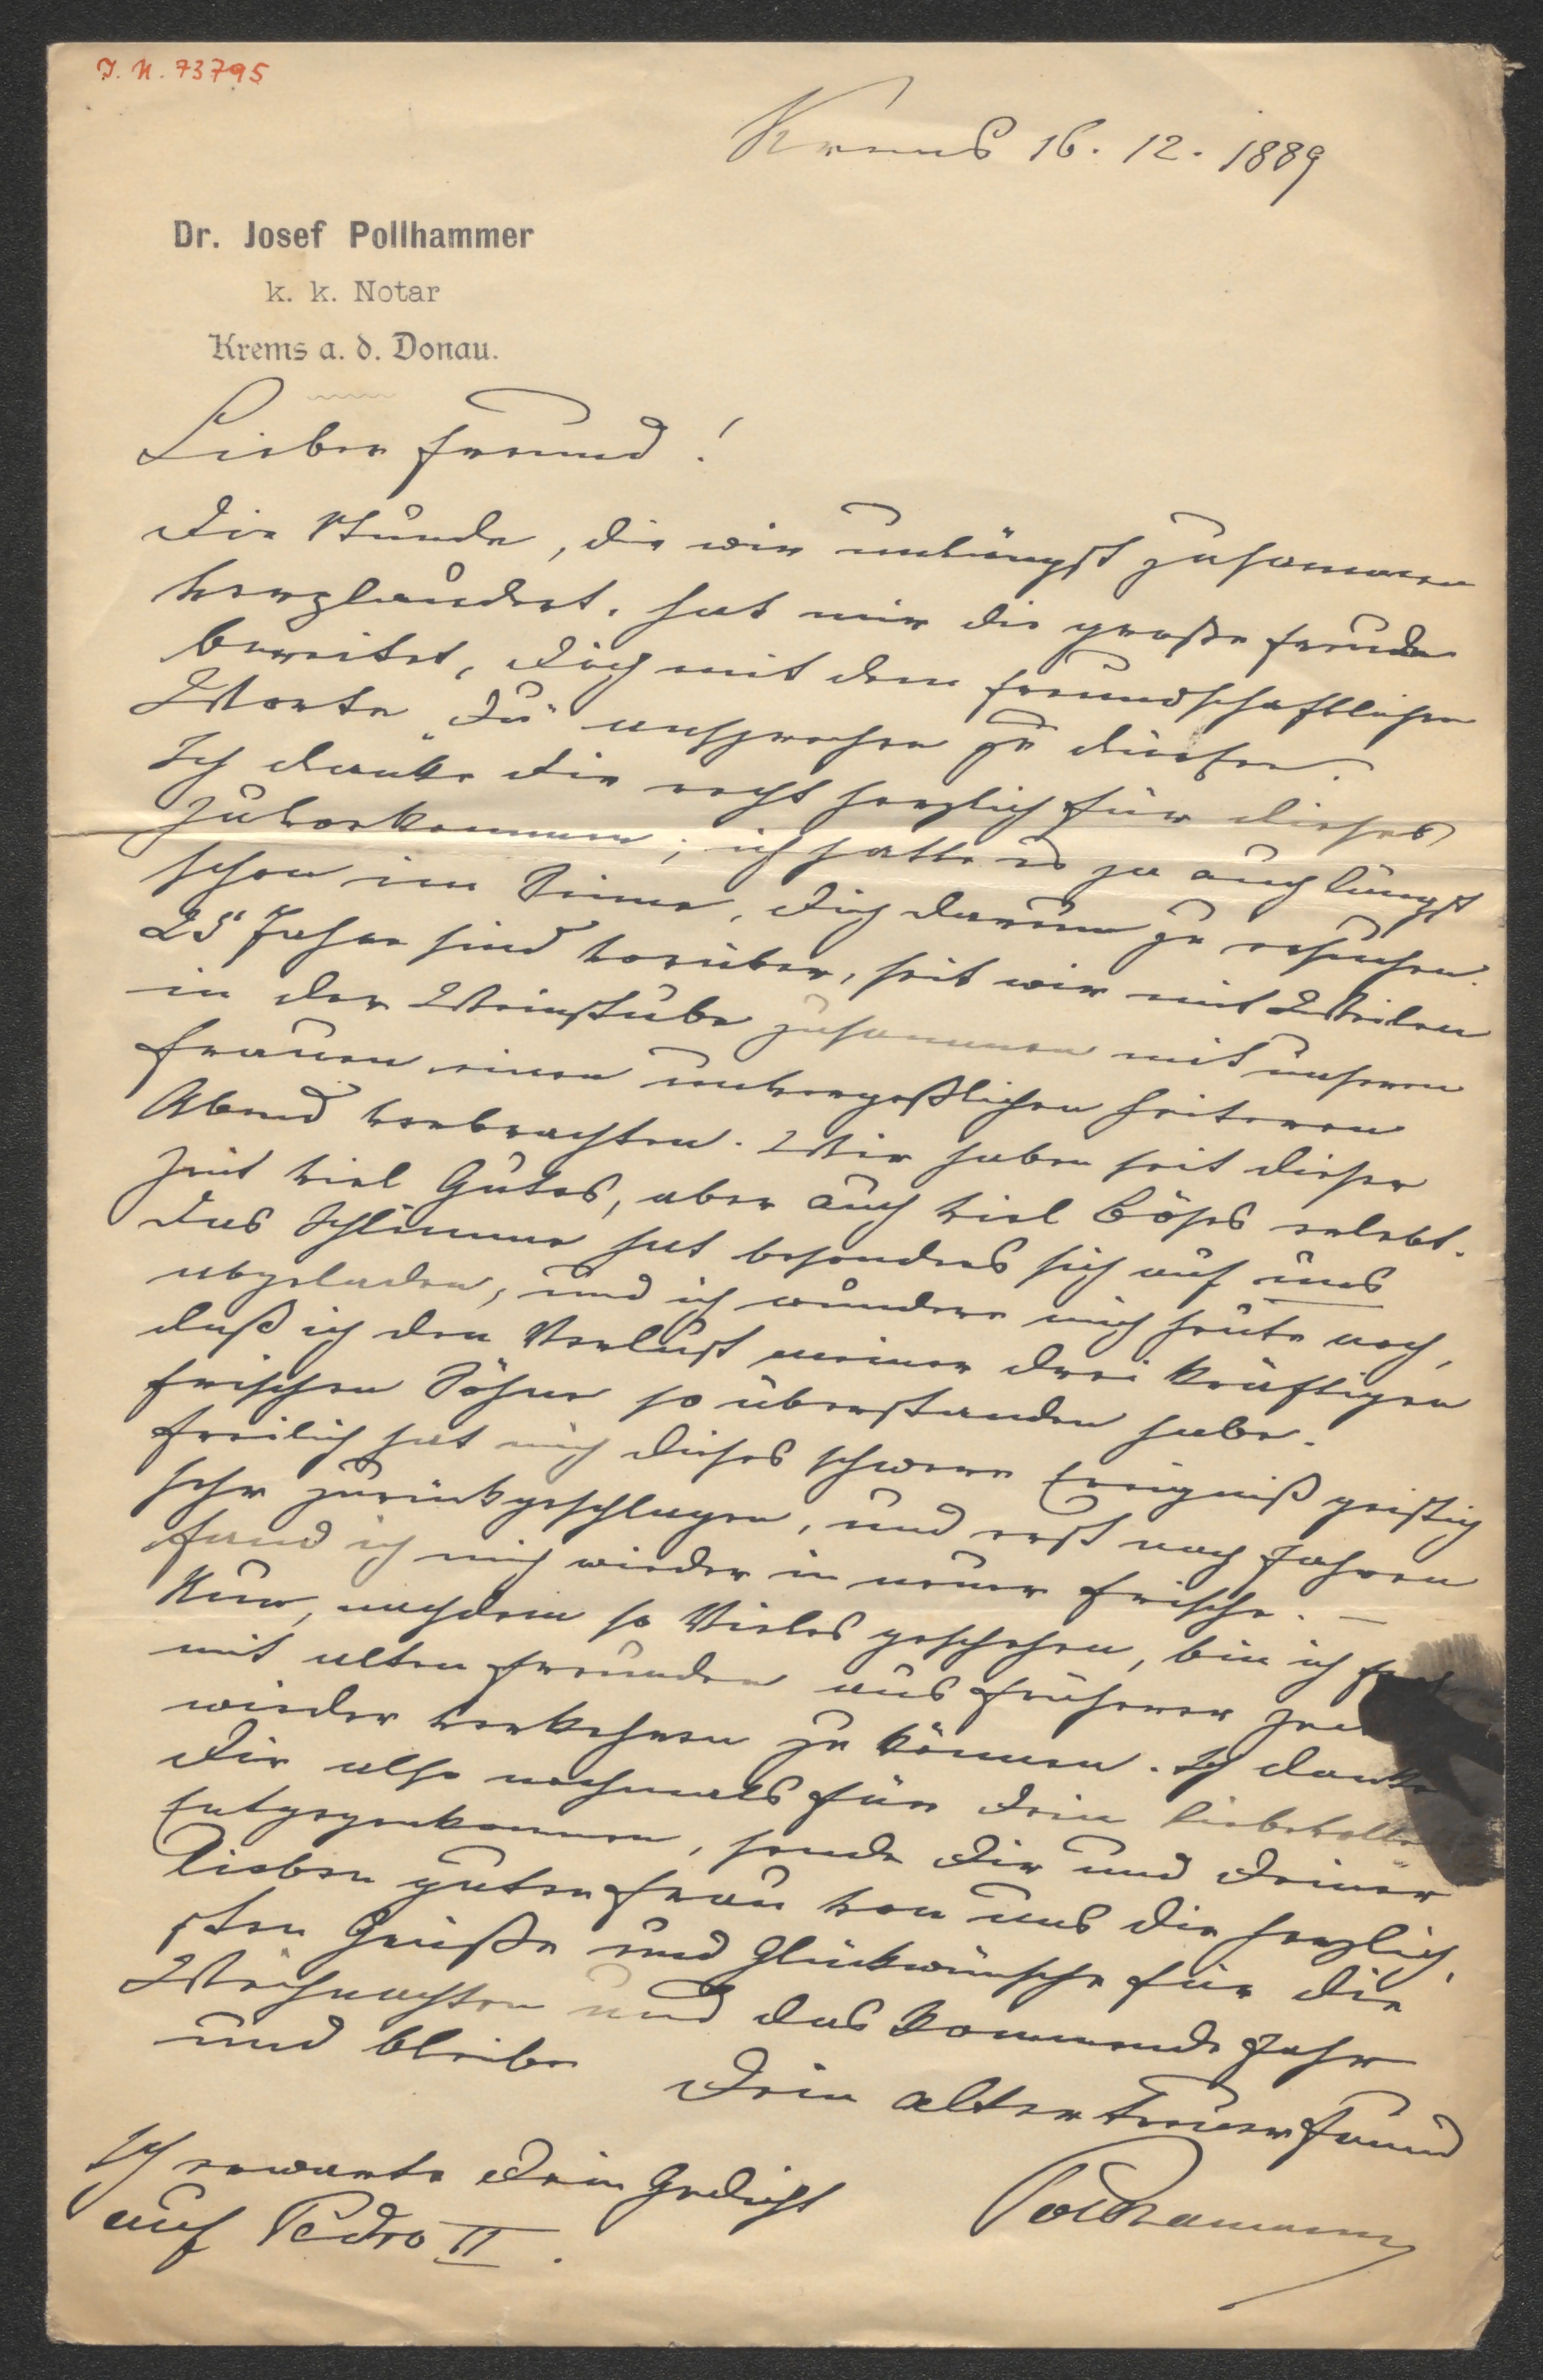 J. N. 73795
Krems 16. 12. 1889
Dr. Josef Pollhammer
k. k. Notar
Krems a. d. Donau.
Lieber Freund!
Die Stunde, die wir unlängst zusammen
verplaudert, hat mir die große Freude
bereitet, Dich mit dem freundschaftlichen
Worte "Du" ansprechen zu dürfen.
Ich danke Dir recht herzlich für dieses
Zuvorkommen; ich hatte es ja auch längst
schon im Sinne, Dich darum zu ersuchen.
25 Jahre sind vorüber, seit wir mit Weilen
in der Weinstube zusammen mit unseren
Frauen einen unvergeßlichen heiteren
Abend verbrachten. Wir haben seit dieser
Zeit viel Gutes, aber auch viel Böses erlebt.
Das Schlimme hat besonders sich auf uns
abgeladen, und ich wundere mich heute noch,
daß ich den Verlust meiner drei kräftigen
frischen Söhne so überstanden habe.
Freilich hat mich dieses schwere Ereigniß geistig
sehr zurückgeschlagen, und erst nach Jahren
fand ich mich wieder in neuer Frische. —
Nun, nachdem so Vieles geschehen, bin ich froh
mit alten Freunden aus früherer Zeit
wieder verkehren zu können. Ich danke
Dir also nochmals für Dein liebevolles
Entgegenkommen, sende Dir und Deiner
lieben guten Frau von uns die herzlich,
sten Grüße und Glückwünsche für die
Weihnachten und das kommende Jahr
und bleibe
Dein alter treuer Freund
Pollhammer
Ich erwarte Dein Gedicht
auf Pedro II.